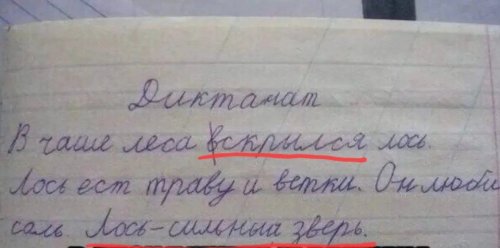 Диктанат
В чаше леса вскрылся лось.
Лось ест траву и ветки. Он люби
соль. Лось-сильный зверь.